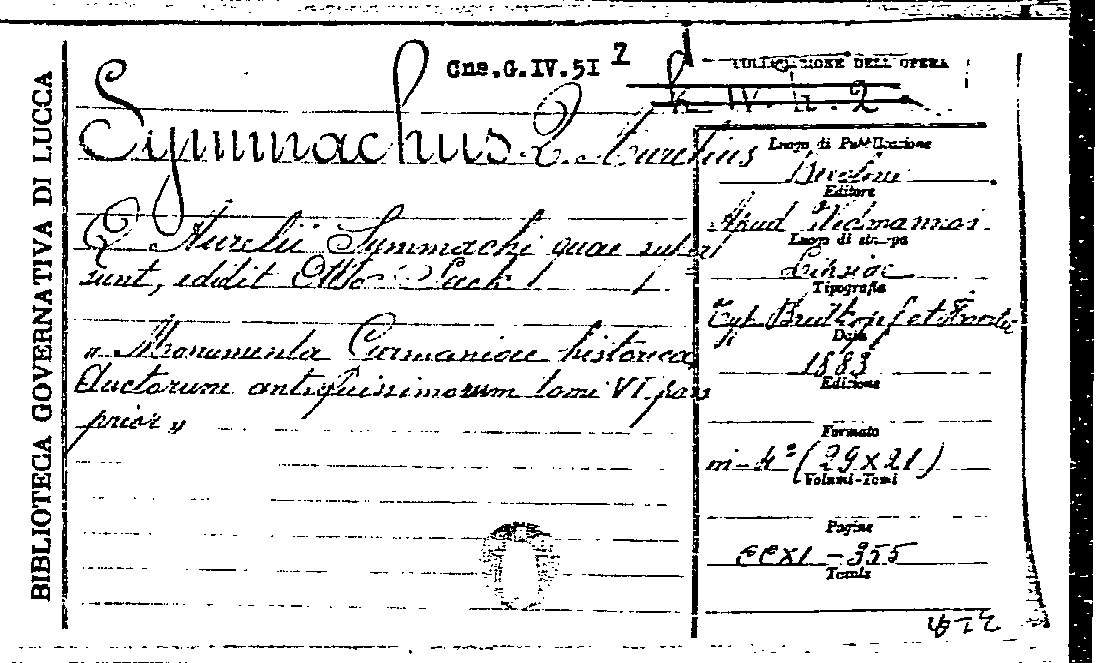 BIBLIOTECA GOVERNATIVA DI LUCCA
Cns.G.IV.51 7
COLLOCAZIONE DELL'OPERA
h. IV. h. 2
Symmachus Q. Aurelius
Q. Aurelii Symmachi quae super
sunt, edidit Otto Seeck
« Monumenta Germaniae historica
Auctorum antiquissimorum tomi VI pars
prior »
Luogo di Pubblicazione
Berolini
Editore
Apud Weidmannos
Luogo di stampa
Lipsiae
Tipografia
Typ. Breitkopf et
Data
1883
Edizione
Formato
in-4° (29x21)
Volumi-Tomi
Pagine
CCXI - 355